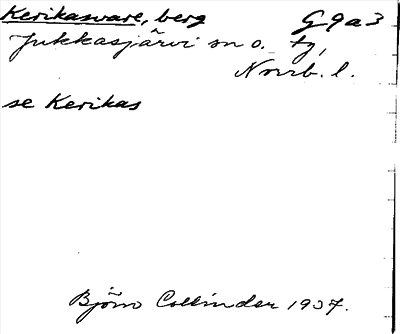 Kerikasvare, berg G-9a3
Jukkasjärvi sn o. tg,
Norrb. l.
se Kerikas
Björn Collinder 1937.